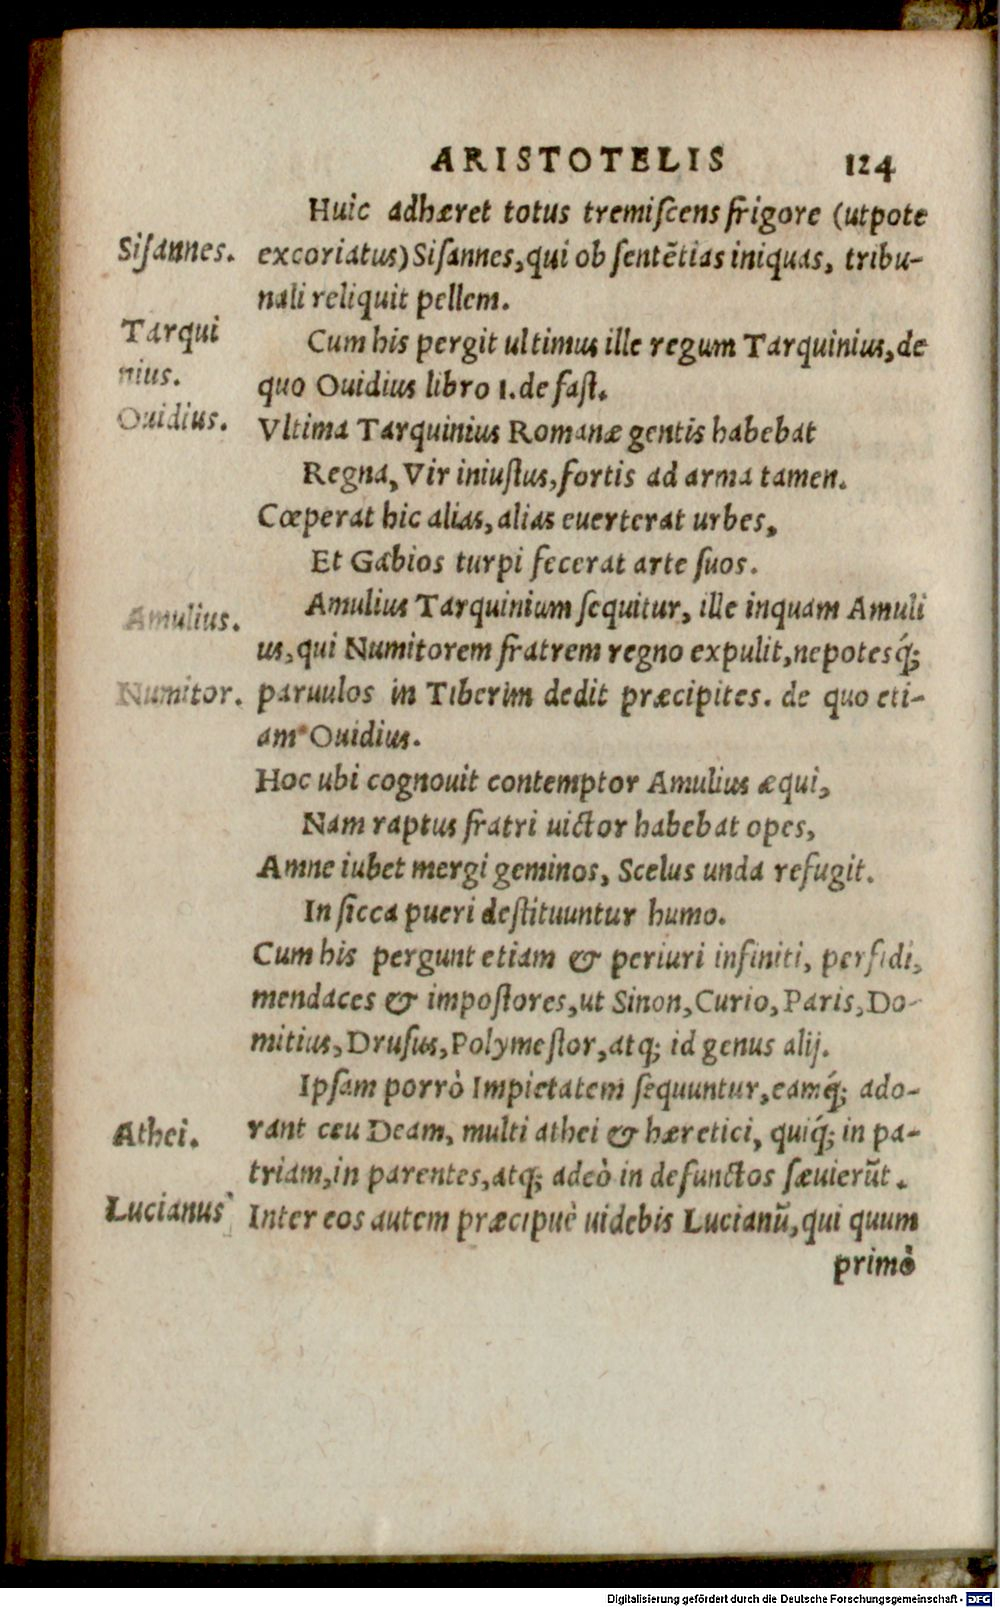 ARISTOTELIS 124
Huic adhæret totus tremiſcens frigore (utpote
Siſannes.
excoriatus) Siſannes, qui ob ſentẽtias iniquas, tribu-
nali reliquit pellem.
Tarqui
nius.
Cum his pergit ultimus ille regum Tarquinius, de
quo Ouidius libro 1. de faſt.
Ouidius.
Vltima Tarquinius Romanæ gentis habebat
Regna, Vir iniuſtus, fortis ad arma tamen.
Cœperat hic alias, alias euerterat urbes,
Et Gabios turpi fecerat arte ſuos.
Amulius.
Amulius Tarquinium ſequitur, ille inquam Amuli
us, qui Numitorem fratrem regno expulit, nepotesq́;
Numitor.
paruulos in Tiberim dedit præcipites. de quo eti-
am Ouidius.
Hoc ubi cognouit contemptor Amulius æqui,
Nam raptus fratri uictor habebat opes,
Amne iubet mergi geminos, Scelus unda refugit.
In ſicca pueri deſtituuntur humo.
Cum his pergunt etiam & periuri infiniti, perfidi,
mendaces & impoſtores, ut Sinon, Curio, Paris, Do-
mitius, Druſus, Polymeſtor, atq; id genus alij.
Ipſam porrò Impietatem ſequuntur, eamq́; ado-
Athei.
rant ceu Deam, multi athei & hæretici, quiq́; in pa-
triam, in parentes, atq; adeò in defunctos ſæuierũt.
Lucianus
Inter eos autem præcipuè uidebis Lucianũ, qui quum
primò
Digitalisierung gefördert durch die Deutsche Forschungsgemeinschaft - DFG